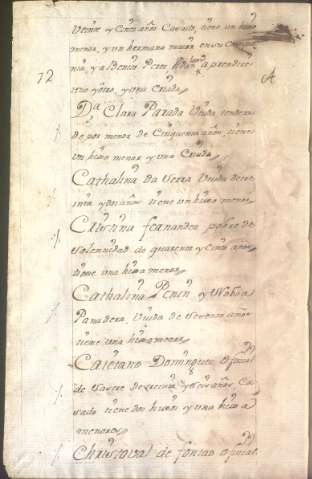 Veinte y Cinco años Casado, tiene un hijo
menor, y un hermano maior en su Compa
nia, y a Benito Perez
72
A
Da Clara Parada Viuda tendera
de por menor de Cinquenta años, tiene
un hijo menor y una Criada
Cathalina da Serra Viuda de tre
inta y años tiene un hijo menor
Christina fernandez pobre de
solemnidad de quarenta y Cinco años
tiene una hija menor
Cathalina Penin y Noboa
Panadera, Viuda de Setenta años
tiene una hija menor
Caietano Dominguez ofizial
de Sastre de treinta y seis años, Ca
sado tiene dos hijos y una hija
menores
Christoval de fontao ofizial